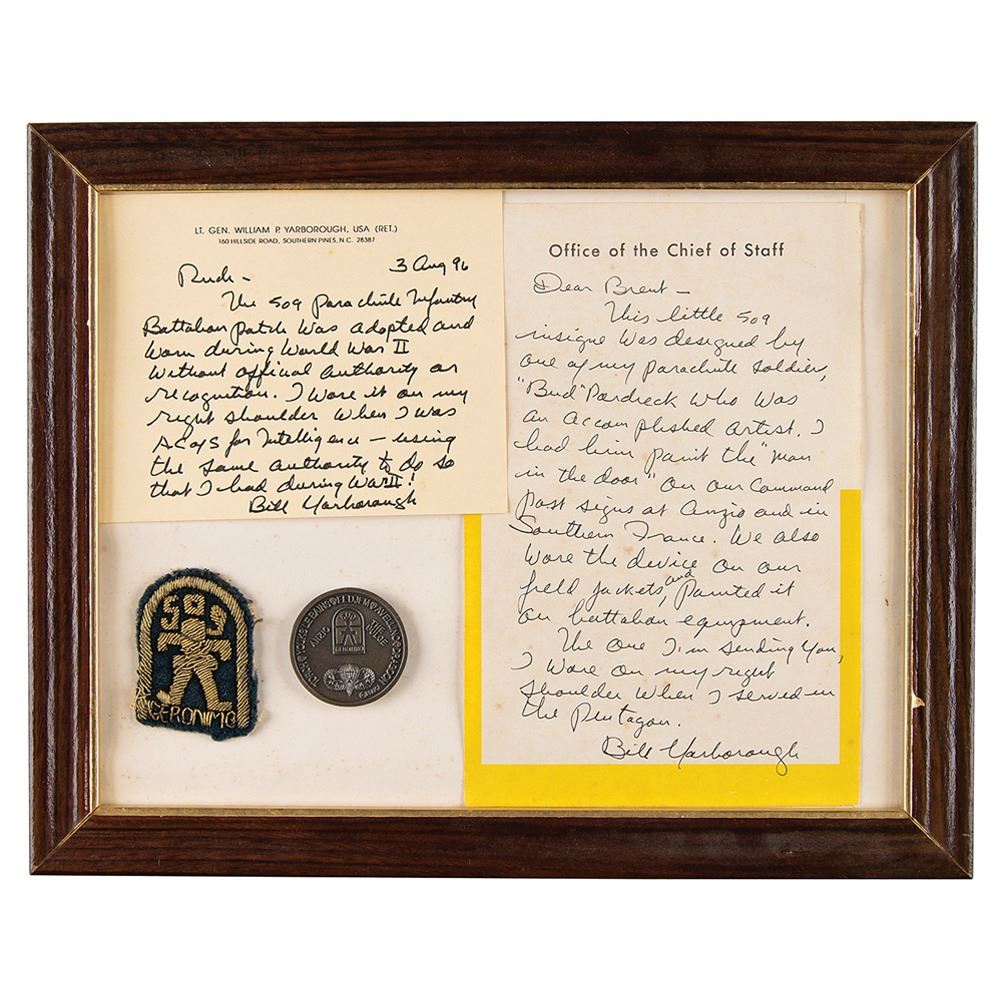 LT. GEN. WILLIAM P. YARBOROUGH, USA (RET.)
160 HILLSIDE ROAD, SOUTHERN PINES, N.C. 28387
3 Aug 96
Rudi -
The 509 Parachute Infantry
Battalion patch was adopted and
worn during World War II
without official authority or
recognition. I wore it on my
right shoulder when I was
ACofS for Intelligence - using
the same authority to do so
that I had during War II!
Bill Yarborough
Office of the Chief of Staff
Dear Brent -
This little 509
insigne was designed by
one of my parachute soldier,
"Bud" Pardreck who was
an accomplished artist. I
had him paint the "man
in the door" on our command
post signs at Anzio and in
Southern France. We also
wore the device on our
field jackets, and painted it
on battalion equipment.
The one I'm sending you,
I wore on my right
shoulder when I served in
the Pentagon.
Bill Yarborough
509
GERONIMO
YOUKS LE BAINS EL DJEM AVELLINO
ANZIO
BULGE
GERONIMO